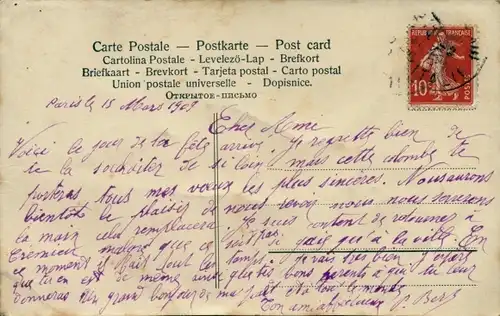 Carte Postale — Postkarte — Post card
Cartolina Postale - Levelező-Lap - Brefkort
Briefkaart - Brevkort - Tarjeta postal - Carto postal
Union postale universelle - Dopisnice.
Открытое-письмо
RÉPUBLIQUE FRANÇAISE
10
POSTES
Paris le 15 Mars 1909
Cher Ami
Voici le jour de ta fête arrivé. Je regrette bien de
te la souhaiter de si loin mais cette colombe te
portera tous mes vœux les plus sincères. Nous aurons
bientôt le plaisir de nous revoir nous nous
la main cela remplacera Je suis content de retourner à
malgré que ce suis pas si gai qu'à la ville. En
ce moment il fait tout le temps. Je vais très bien j'espère
que tu en est de même ainsi que tes bons parents à qui tu leur
donneras un grand bonjour de ma part et à tout le monde
Ton ami P. Bert